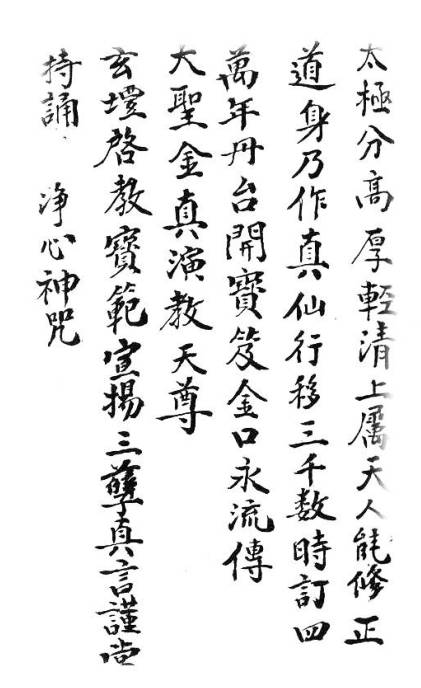 太極分高厚輕清上屬天人能修正
道身乃作真仙行移三千数時訂四
萬年丹台開寶笈金口永流傳
大聖金真演教天尊
玄壇啓教寶範宣揚三孽真言謹當
持誦 净心神咒